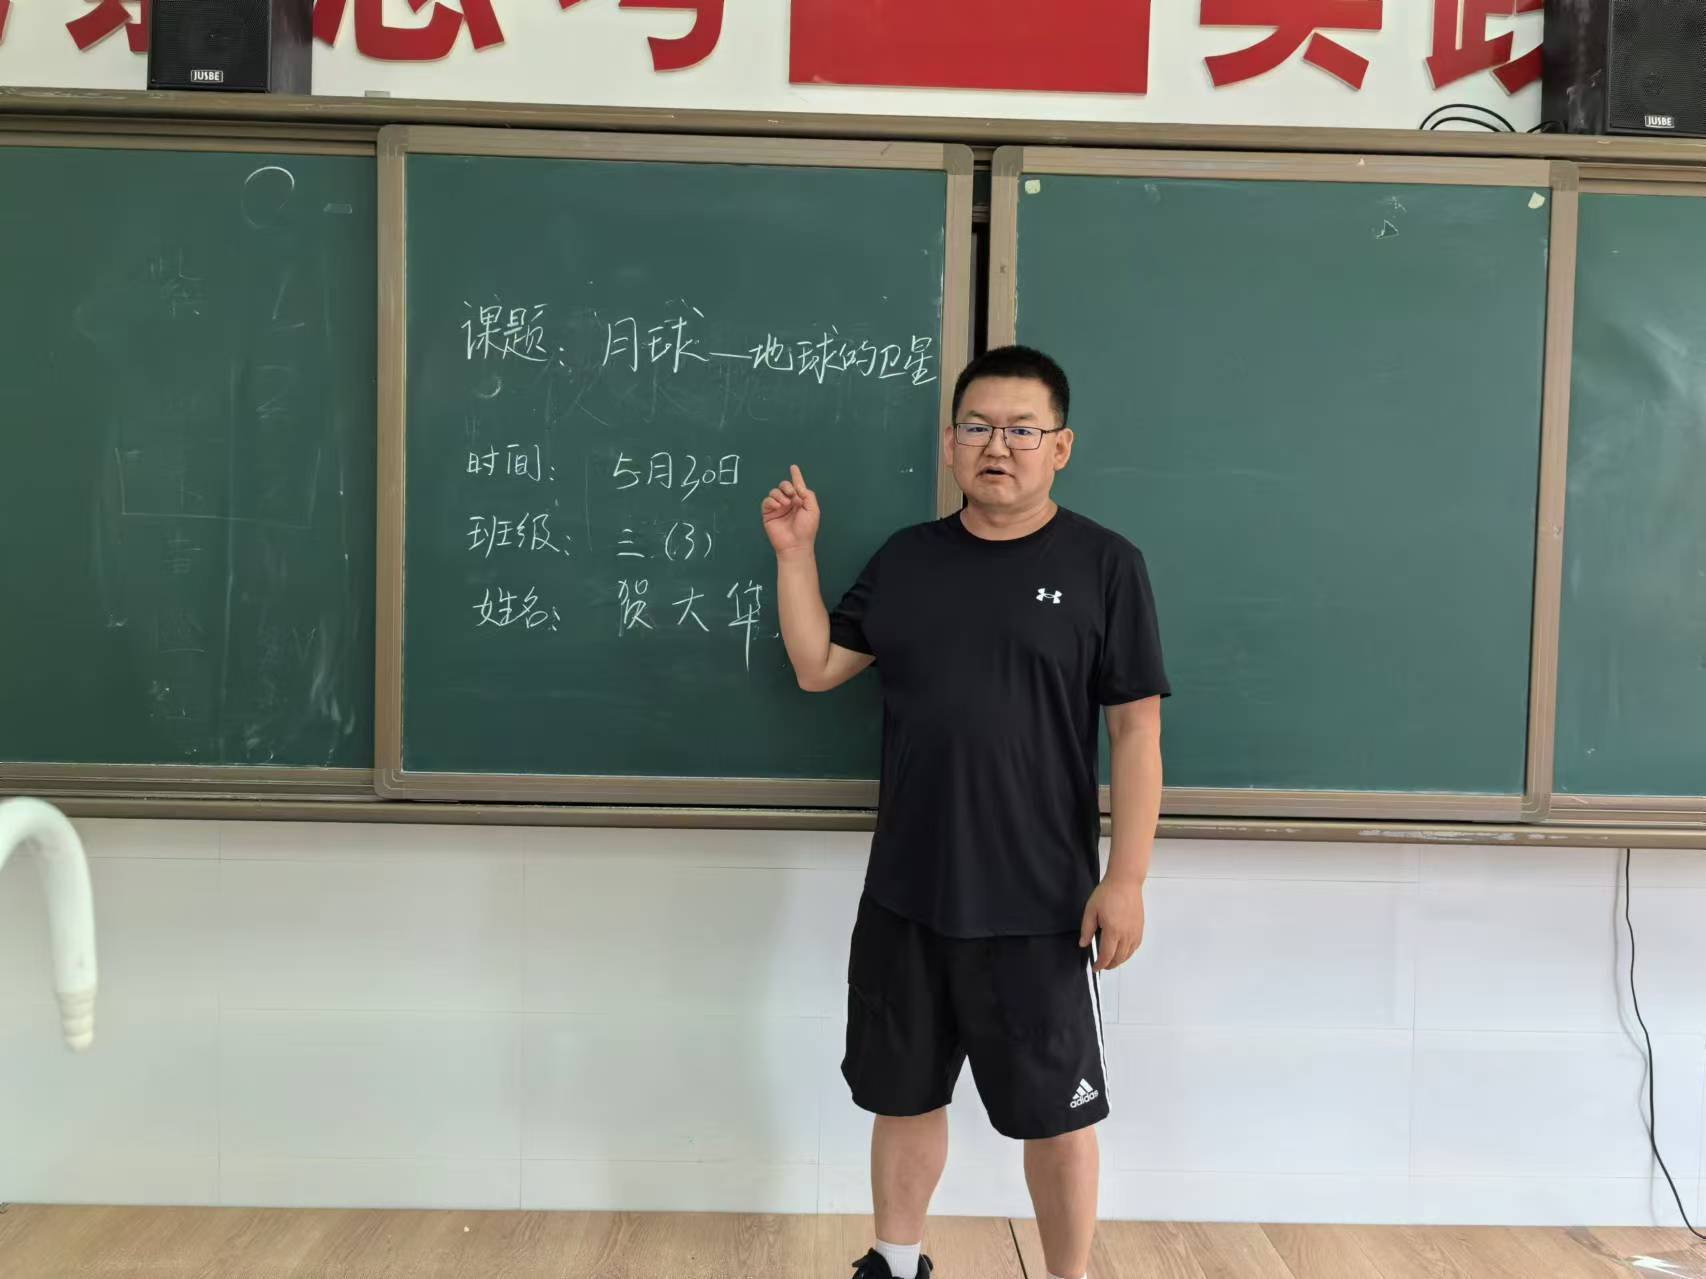 思考
实践
JUSBE
JUSBE
课题：月球—地球的卫星
时间：5月30日
班级：三（3）
姓名：贺大华
adidas